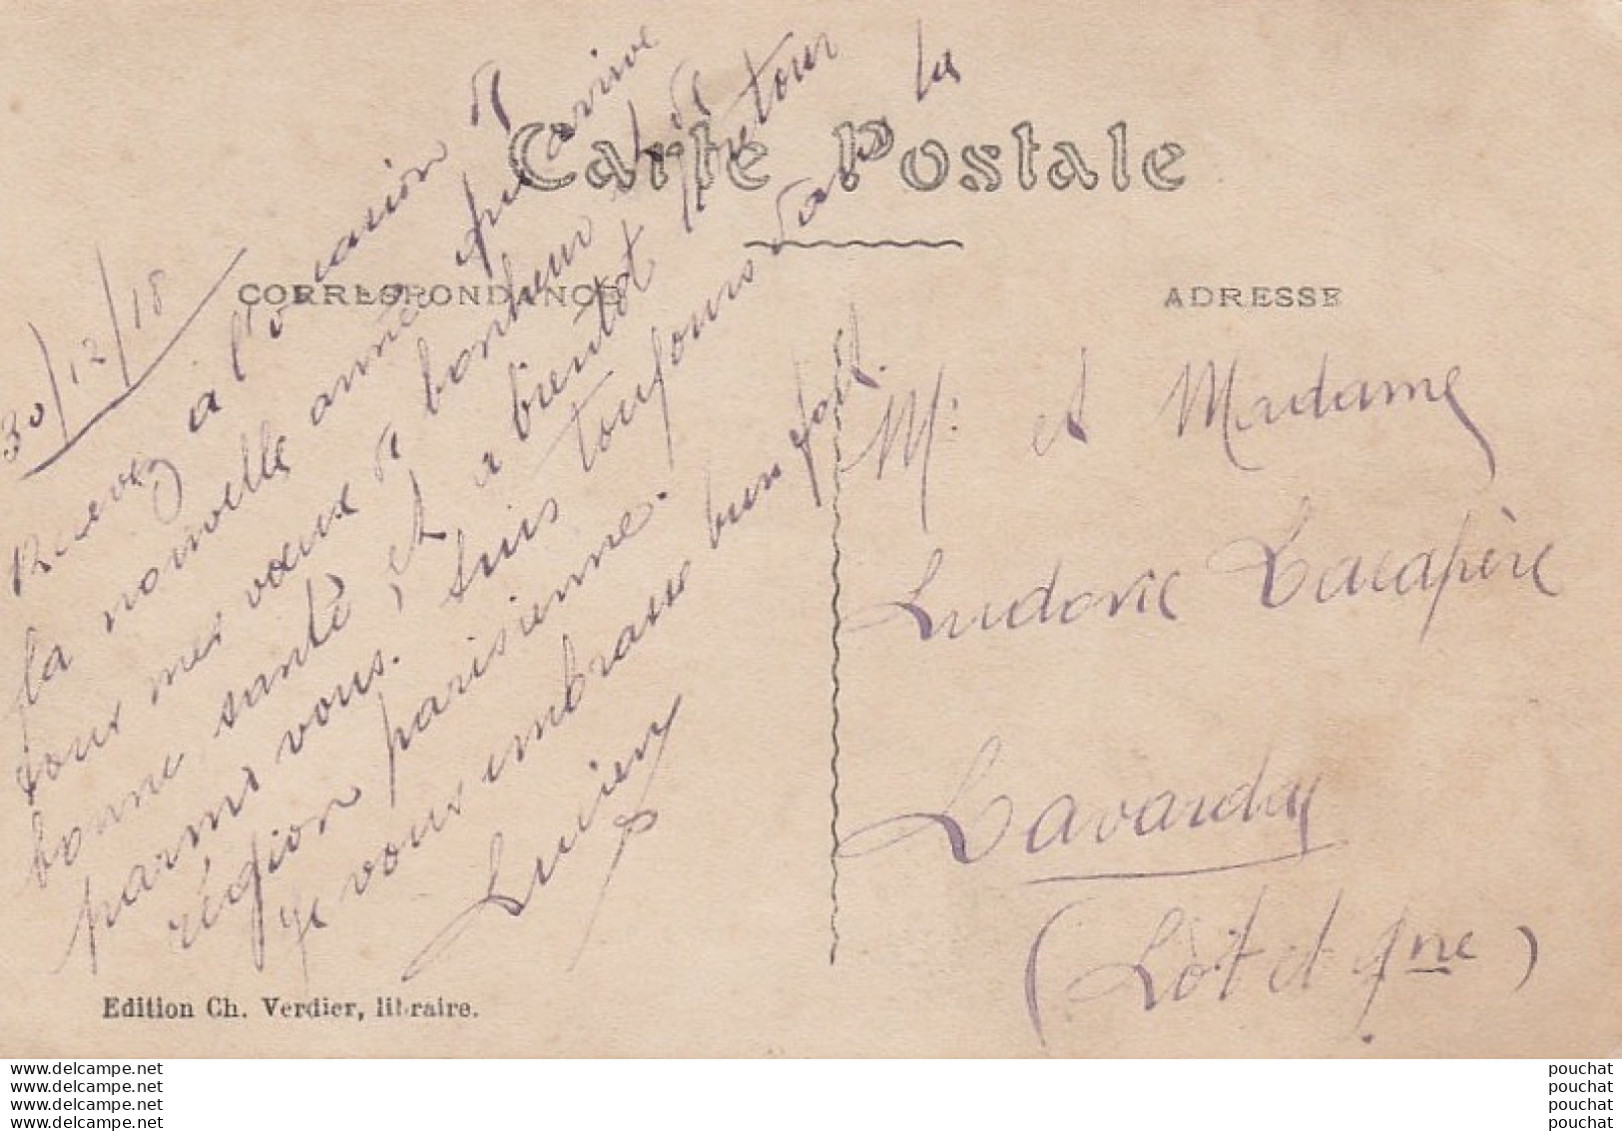 Carte Postale
CORRESPONDANCE
ADRESSE
30/12/18
Recevez à l'occasion de
la nouvelle année qui arrive
tous mes vœux de bonheur et de
bonne santé, et a bientot retour
parmi vous. Suis toujours dans la
région parisienne.
Je vous embrasse bien fort.
Lucien
Mr et Madame
Ludovic Lacapère
Lavardac
(Lot et Gne)
Edition Ch. Verdier, libraire.
www.delcampe.net
www.delcampe.net
www.delcampe.net
www.delcampe.net
pouchat
pouchat
pouchat
pouchat